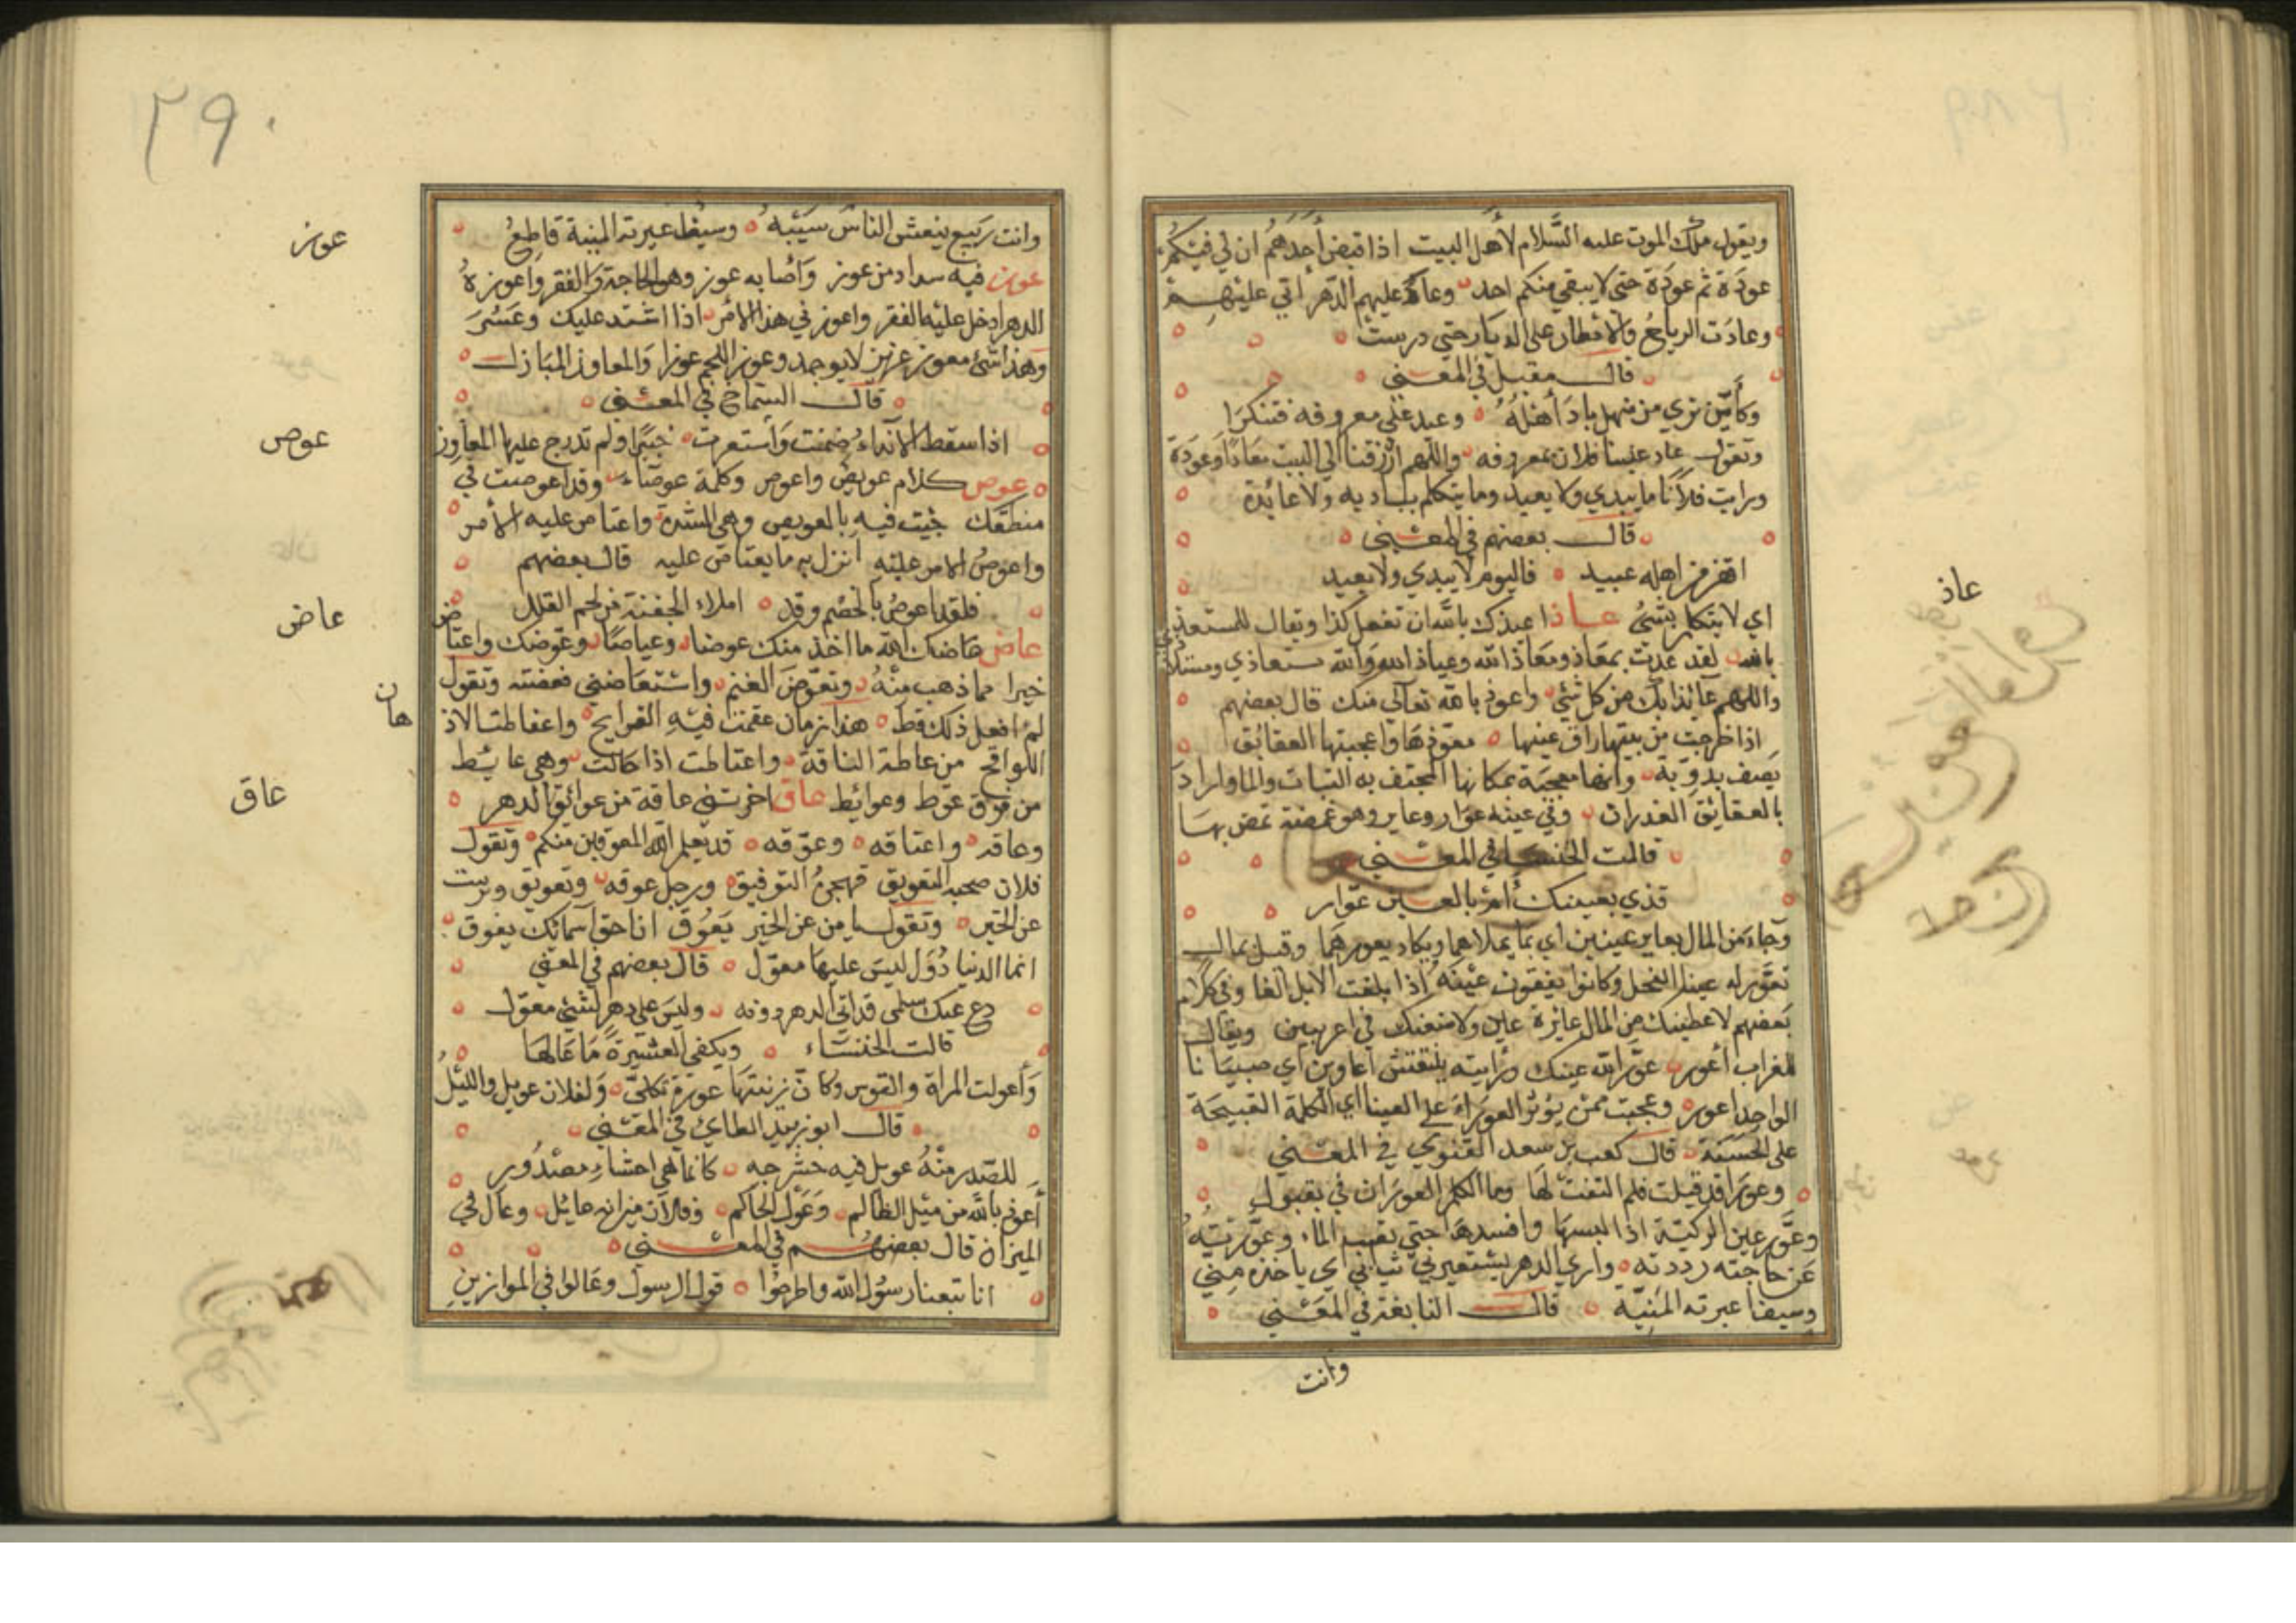 ويقول ملك الموت عليه السَّلام لأهل البيت اذا قبض أحدهُم ان لي فيكُم
عودَة ثم عودَة حتى لا يبقى منكم احد وعاد عليهم الدّهر أتي عليهم
وعادَت الرياحُ والامطار على الديار حتى درست
قال مقبل في المعنى
وكأيّن نري من منهل باد أهلُهُ وعيد على معروفه فتنكرَا
وتقول عاد علينا فلان بمعروفه واللّهم ارزقنا الي البيت معَادًا وعَودَة
ورايت فلاًنا ما يبدي ولا يعيد وما يتكلم ببادية ولا عائدة
قال بعضهم في المعنى
اقفر من اهله عبيد فاليوم لا يبدي ولا يعيد
اي لا يتكلم بشئ عاذ اعيذك بالله ان تفعل كذا ويقال للمستعيذ
بالله لقد عذت بمعَاذ ومعَاذ الله وعياذ الله والله مستعاذي
واللهم عائذا بك من كل شئ واعوذ بالله تعالى منك قال بعضهم
اذا خرجت من بيتها راق عينها معوّذهَا واعجبتها العقائق
يَصف بدويّة وانها معجبَة بمكانها المحتف به النبات والما واراد
بالعقايق الغدران وفي عينه عوار وعاير وهو غمضة تمض بها
قالت الخنسا في المعنى
قذي بعينك أم بالعين عوّار
وجاء من المال بعاير عينين اي بما يملاهما ويكاد يعورهما
تعوّر له عين الفحل وكانوا يفقون عينَه اذا بلغت الابل الفا وفي كلام
بَعضهم لاعطينك من المال عايرة عين ويقال
للغراب أعور عوّر الله عينك ورأيته
الواحد اعور وعجبت ممن يؤثر العورَاء على العينا اي الكلمة القبيحَة
على الحسَنَة قال كعب بن سعد الغنوي في المعنى
وعورَا قد قيلت فلم التفت لهَا وما الكلم العورَان في بقبول
وعَوّر عين الركيّة اذا البسهَا وافسدهَا حتي نضب الماء وعوّرتهُ
عن حاجته رددته واري الدهر يستعيرني ثيابي اي ياخذه منِي
وسيفا عيرته المَنِيّة قال النابغة في المعنى
وانت
عاذ
٢٩٠
وانت رَبيع ينعش الناسَ سَيبُهُ وسيف اعيرته المنية قاطعُ
عوز فيه سداد من عوز وَاصَابه عوز وهو الحاجة والفقر واعوزهُ
الدهر ادخل عليه الفقر واعوز في هذا الامر اذا اشتد عليك وعَسُرَ
وهذا شئ معوز عزيز لا يوجد وعوز اللحم عوزا وَالمعاوز المبَاذل
قال الشماخ في المعنى
اذا سقط الانداء ضمنت واستعرت حبيرا ولم تدرج عليها المعاوز
عوص كلام عويص واعوص وكلمة عوصَاء وقد اعوصت في
منطقك جئت فيه بالعويص وهي الشدة واعتاص عليه الأمر
واعوصُ الامر عليه انزل به ما يعتاص عليه قال بعضهم
فلقد اعوصُ بالخصم وقد املاء الجفنة من لحم القلل
عاض عَاضك الله مما اخذ منك عوضا وعياضًا وعوّضك واعتاض
خيرا مما ذهب منهُ وتعوّض الغنم واستعَاضني فعضته وتقول
لم افعل ذلك قط هذا زمان عقمت فيهِ القرايح واعتاطت الاذ
هان
اللواقح من عاطة الناقة واعتاطت اذا حَالت وهي عَائط
من نوق عوّط وعوايط عاق اخرتني عاقة من عوائق الدهر
وعاقه واعتاقه وعوّقه قد يعلم الله المعوقين منكم وتقول
فلان صحبه التعويق فهجرهُ التوفيق ورجل عوقه وتعويق وتربيث
عن الخير وتقول يا من عن الخير يَعُوق انا حق أسمائك يعوق
انما الدنيا دُوَل ليسَ عليهَا معوّل قال بعضهم في المعنى
دع عنك سلمي قد اتى الدهر دونه وليسَ على دهرٍ لشئ معوّل
قالت الخنسَاء ويكفي العشيرَةَ مَا عَالهَا
وَأعولت المرأة والقوس وكان رنتهَا عورة ثكلى وَلفلان عويل والليلُ
قال ابو زبيد الطاي في المعنى
للصَّدر منهُ عويل فيه حشرجه كانما هي احشاء مصْدُورِ
أعوذ بالله من ميل الظالم وَعَول الحاكم وفلان ميزانه عايل وعال في
الميزان قال بعضهم في المعنى
انا تبعنا رسُول الله واطرحُوا قول الرسول وعَالوا في الموازينِ
عوز
عوص
عاض
عاق